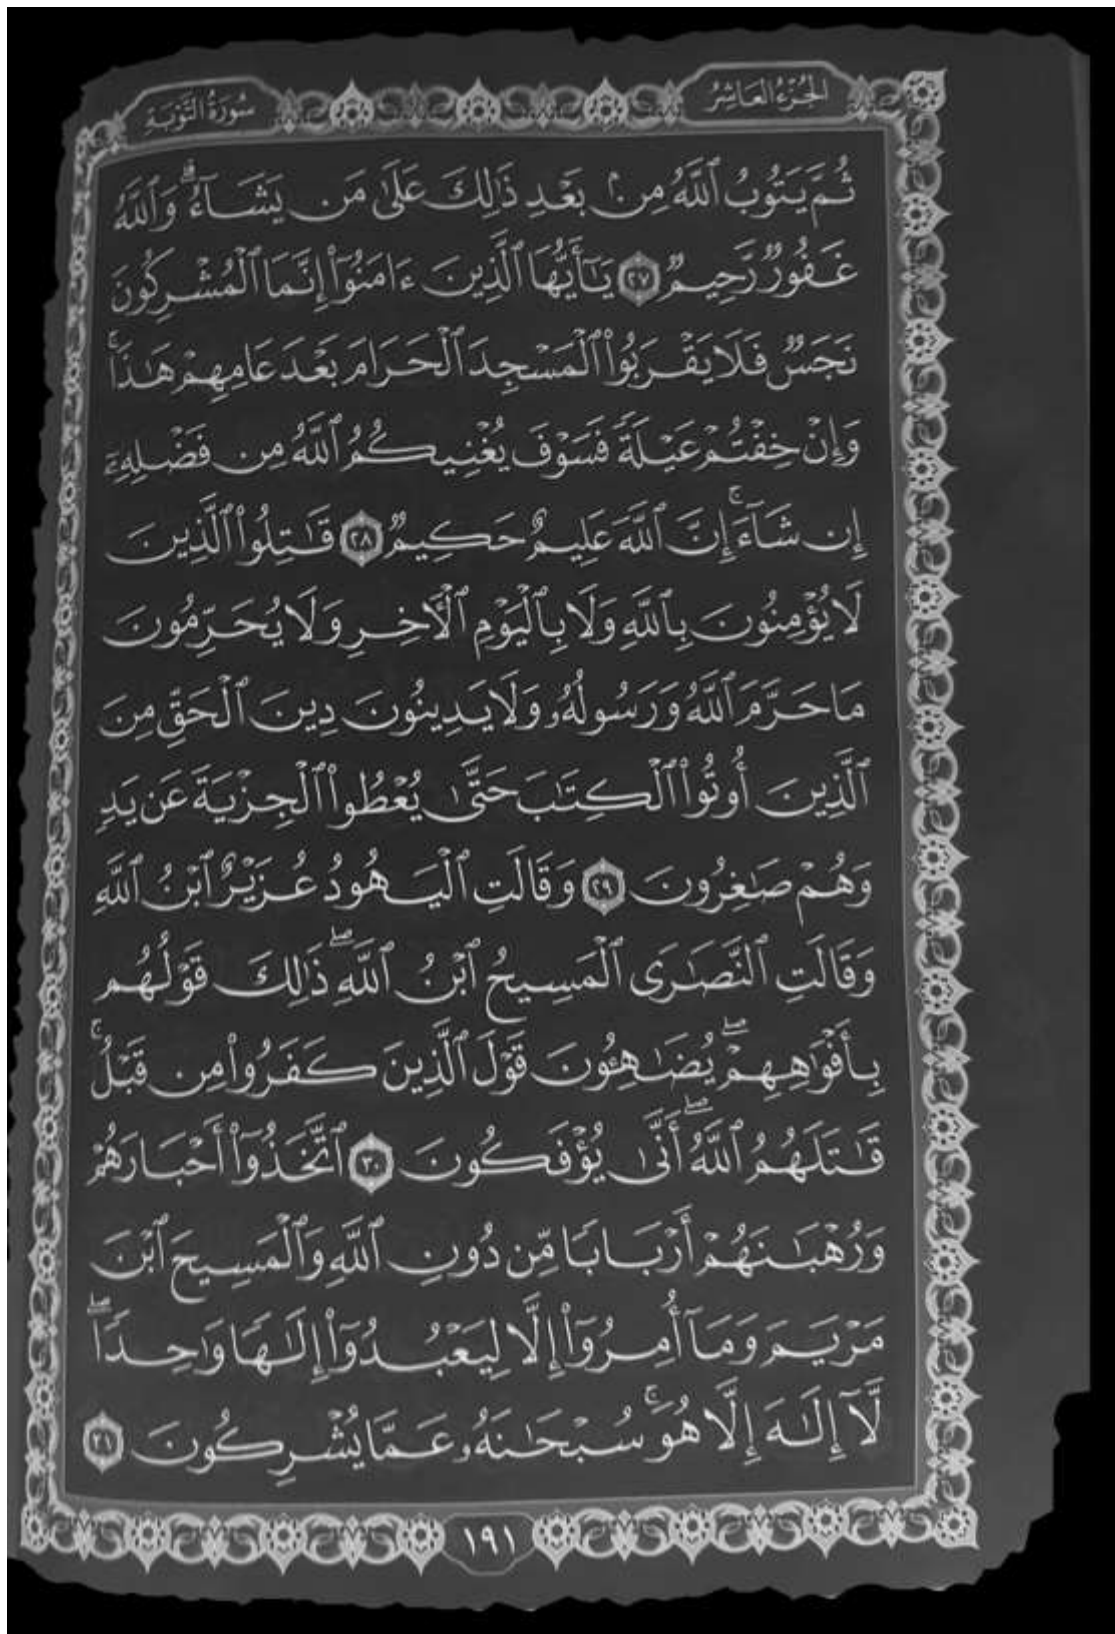 الجزء العاشر
سورة التوبة
ثُمَّ يَتُوبُ ٱللَّهُ مِنۢ بَعْدِ ذَٰلِكَ عَلَىٰ مَن يَشَآءُۗ وَٱللَّهُ
غَفُورٌ رَّحِيمٌ ٢٧ يَٰٓأَيُّهَا ٱلَّذِينَ ءَامَنُوٓاْ إِنَّمَا ٱلْمُشْرِكُونَ
نَجَسٌ فَلَا يَقْرَبُواْ ٱلْمَسْجِدَ ٱلْحَرَامَ بَعْدَ عَامِهِمْ هَٰذَاۚ
وَإِنْ خِفْتُمْ عَيْلَةً فَسَوْفَ يُغْنِيكُمُ ٱللَّهُ مِن فَضْلِهِۦٓ
إِن شَآءَۚ إِنَّ ٱللَّهَ عَلِيمٌ حَكِيمٌ ٢٨ قَٰتِلُواْ ٱلَّذِينَ
لَا يُؤْمِنُونَ بِٱللَّهِ وَلَا بِٱلْيَوْمِ ٱلْأَخِرِ وَلَا يُحَرِّمُونَ
مَا حَرَّمَ ٱللَّهُ وَرَسُولُهُۥ وَلَا يَدِينُونَ دِينَ ٱلْحَقِّ مِنَ
ٱلَّذِينَ أُوتُواْ ٱلْكِتَٰبَ حَتَّىٰ يُعْطُواْ ٱلْجِزْيَةَ عَن يَدٍ
وَهُمْ صَٰغِرُونَ ٢٩ وَقَالَتِ ٱلْيَهُودُ عُزَيْرٌ ٱبْنُ ٱللَّهِ
وَقَالَتِ ٱلنَّصَٰرَى ٱلْمَسِيحُ ٱبْنُ ٱللَّهِۖ ذَٰلِكَ قَوْلُهُم
بِأَفْوَٰهِهِمْۖ يُضَٰهِـُٔونَ قَوْلَ ٱلَّذِينَ كَفَرُواْ مِن قَبْلُۚ
قَٰتَلَهُمُ ٱللَّهُۖ أَنَّىٰ يُؤْفَكُونَ ٣٠ ٱتَّخَذُوٓاْ أَحْبَارَهُمْ
وَرُهْبَٰنَهُمْ أَرْبَابًا مِّن دُونِ ٱللَّهِ وَٱلْمَسِيحَ ٱبْنَ
مَرْيَمَ وَمَآ أُمِرُوٓاْ إِلَّا لِيَعْبُدُوٓاْ إِلَٰهًا وَٰحِدًاۖ
لَّآ إِلَٰهَ إِلَّا هُوَۚ سُبْحَٰنَهُۥ عَمَّا يُشْرِكُونَ ٣١
١٩١